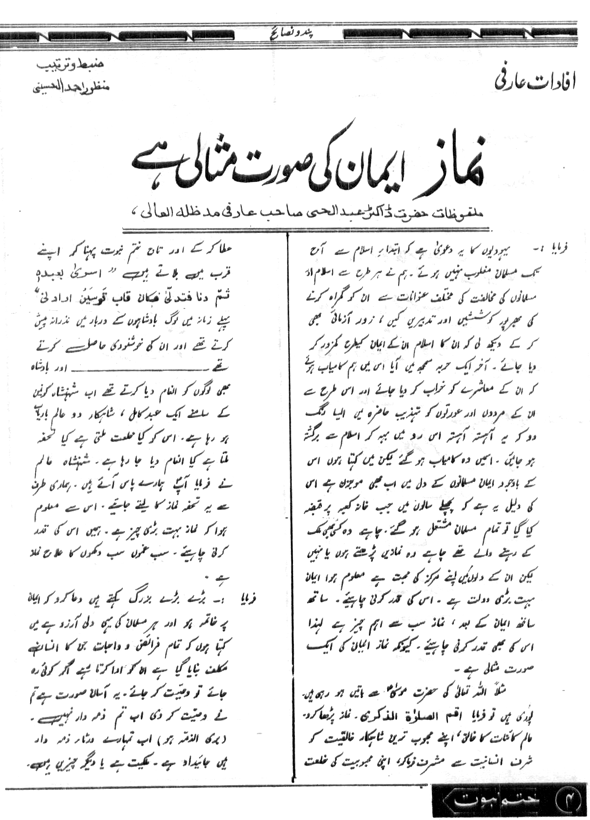 پند و نصائح
افادات عارفی
ضبط و ترتیب
منظور احمد الحسینی
نماز ایمان کی صورت مثالی ہے
ملفوظات حضرت ڈاکٹر عبدالحی صاحب عارفی مدظلہ العالی،
فرمایا :- یہودیوں کا یہ دعویٰ ہے کہ ابتداءِ اسلام سے آج
تک مسلمان مغلوب نہیں ہوئے۔ ہم نے ہر طرح سے اسلام اور
مسلمانوں کی مخالفت کی مختلف عنوانات سے ان کو گمراہ کرنے
کی بھرپور کوششیں اور تدبیریں کیں، زور آزمائی بھی
کر کے دیکھ لی کہ ان کا اسلام ان کے ایمان کیطرح کمزور کر
دیا جائے۔ آخر ایک حربہ سمجھ میں آیا اس میں ہم کامیاب ہوئے
کہ ان کے معاشرے کو خراب کر دیا جائے اور اس طرح سے
ان کے مردوں اور عورتوں کو تہذیب حاضرہ میں ایسا رنگ
دو کہ یہ آہستہ آہستہ اس رو میں بہہ کر اسلام سے برگشتہ
ہو جائیں۔ انہیں وہ کامیاب ہو گئے لیکن میں کہتا ہوں اس
کے باوجود ایمان مسلمانوں کے دل میں اب بھی موجزن ہے اس
کی دلیل یہ ہے کہ پچھلے سالوں میں جب خانہ کعبہ پر قبضہ
کیا گیا تو تمام مسلمان مشتعل ہو گئے۔ چاہے وہ کسی بھی ملک
کے رہنے والے تھے چاہے وہ نمازیں پڑھتے ہوں یا نہیں
لیکن ان کے دلوں میں اپنے مرکز کی محبت ہے معلوم ہوا ایمان
بہت بڑی دولت ہے۔ اس کی قدر کرنی چاہیئے۔ ساتھ
ساتھ ایمان کے بعد، نماز سب سے اہم چیز ہے لہٰذا
اس کی بھی قدر کرنی چاہیئے۔ کیونکہ نماز ایمان کی ایک
صورت مثالی ہے۔
مثلاً اللہ تعالیٰ کی حضرت موسیٰؑ سے باتیں ہو رہی ہیں۔
ہو رہی ہیں تو فرمایا اقم الصلوٰۃ لذکری۔ نماز پڑھا کرو۔
عالم کائنات کا خالق، اپنے محبوب ترین شاہکار خالقیت کو
شرف انسانیت سے مشرف فرما کر، اپنی محبوبیت کی خلعت
عطا کر کے اور تاج ختم نبوت پہنا کر اپنے
قرب میں بلاتے ہیں "اسریٰ بعبدہ
ثم دنا فتدلیٰ فکان قاب قوسین او ادنیٰ"
پہلے زمانہ میں لوگ بادشاہوں کے دربار میں نذرانہ پیش
کرتے تھے اور ان کی خوشنودی حاصل کرتے
تھے ــــــــــ اور بادشاہ
بھی لوگوں کو انعام دیا کرتے تھے اب شہنشاہ کونین
کے سامنے ایک عبد کامل، شاہکار دو عالم باریاب
ہو رہا ہے۔ اس کو کیا خلعت ملتی ہے کیا تحفہ
ملتا ہے کیا انعام دیا جا رہا ہے۔ شہنشاہ عالم
نے فرمایا آپ ہمارے پاس آئے ہیں۔ ہماری طرف
سے یہ تحفہ نماز کا لیتے جائیے۔ اس سے معلوم
ہوا کہ نماز بہت بڑی چیز ہے۔ ہمیں اس کی قدر
کرنی چاہیئے۔ سب غموں سب دکھوں کا علاج نماز
ہے۔
فرمایا :- بڑے بڑے بزرگ کہتے ہیں دعا کرو کہ ایمان
پر خاتمہ ہو اور ہر مسلمان کی یہی دلی آرزو ہے میں
کہتا ہوں کہ تمام فرائض و واجبات جن کا انسان اپنے
مکلف بنایا گیا ہے ان کو ادا کرتا رہے اگر کوئی رہ
جائے تو وصیت کر جائے۔ یہ آسان صورت ہے تم
نے وصیت کر دی اب تم ذمہ دار نہیں۔
(بری الذمہ ہو) اب تمہارے ورثاء ذمہ دار
ہیں جائیداد ہے۔ ملکیت ہے یا دیگر چیزیں ہیں۔
ختم نبوت
۴